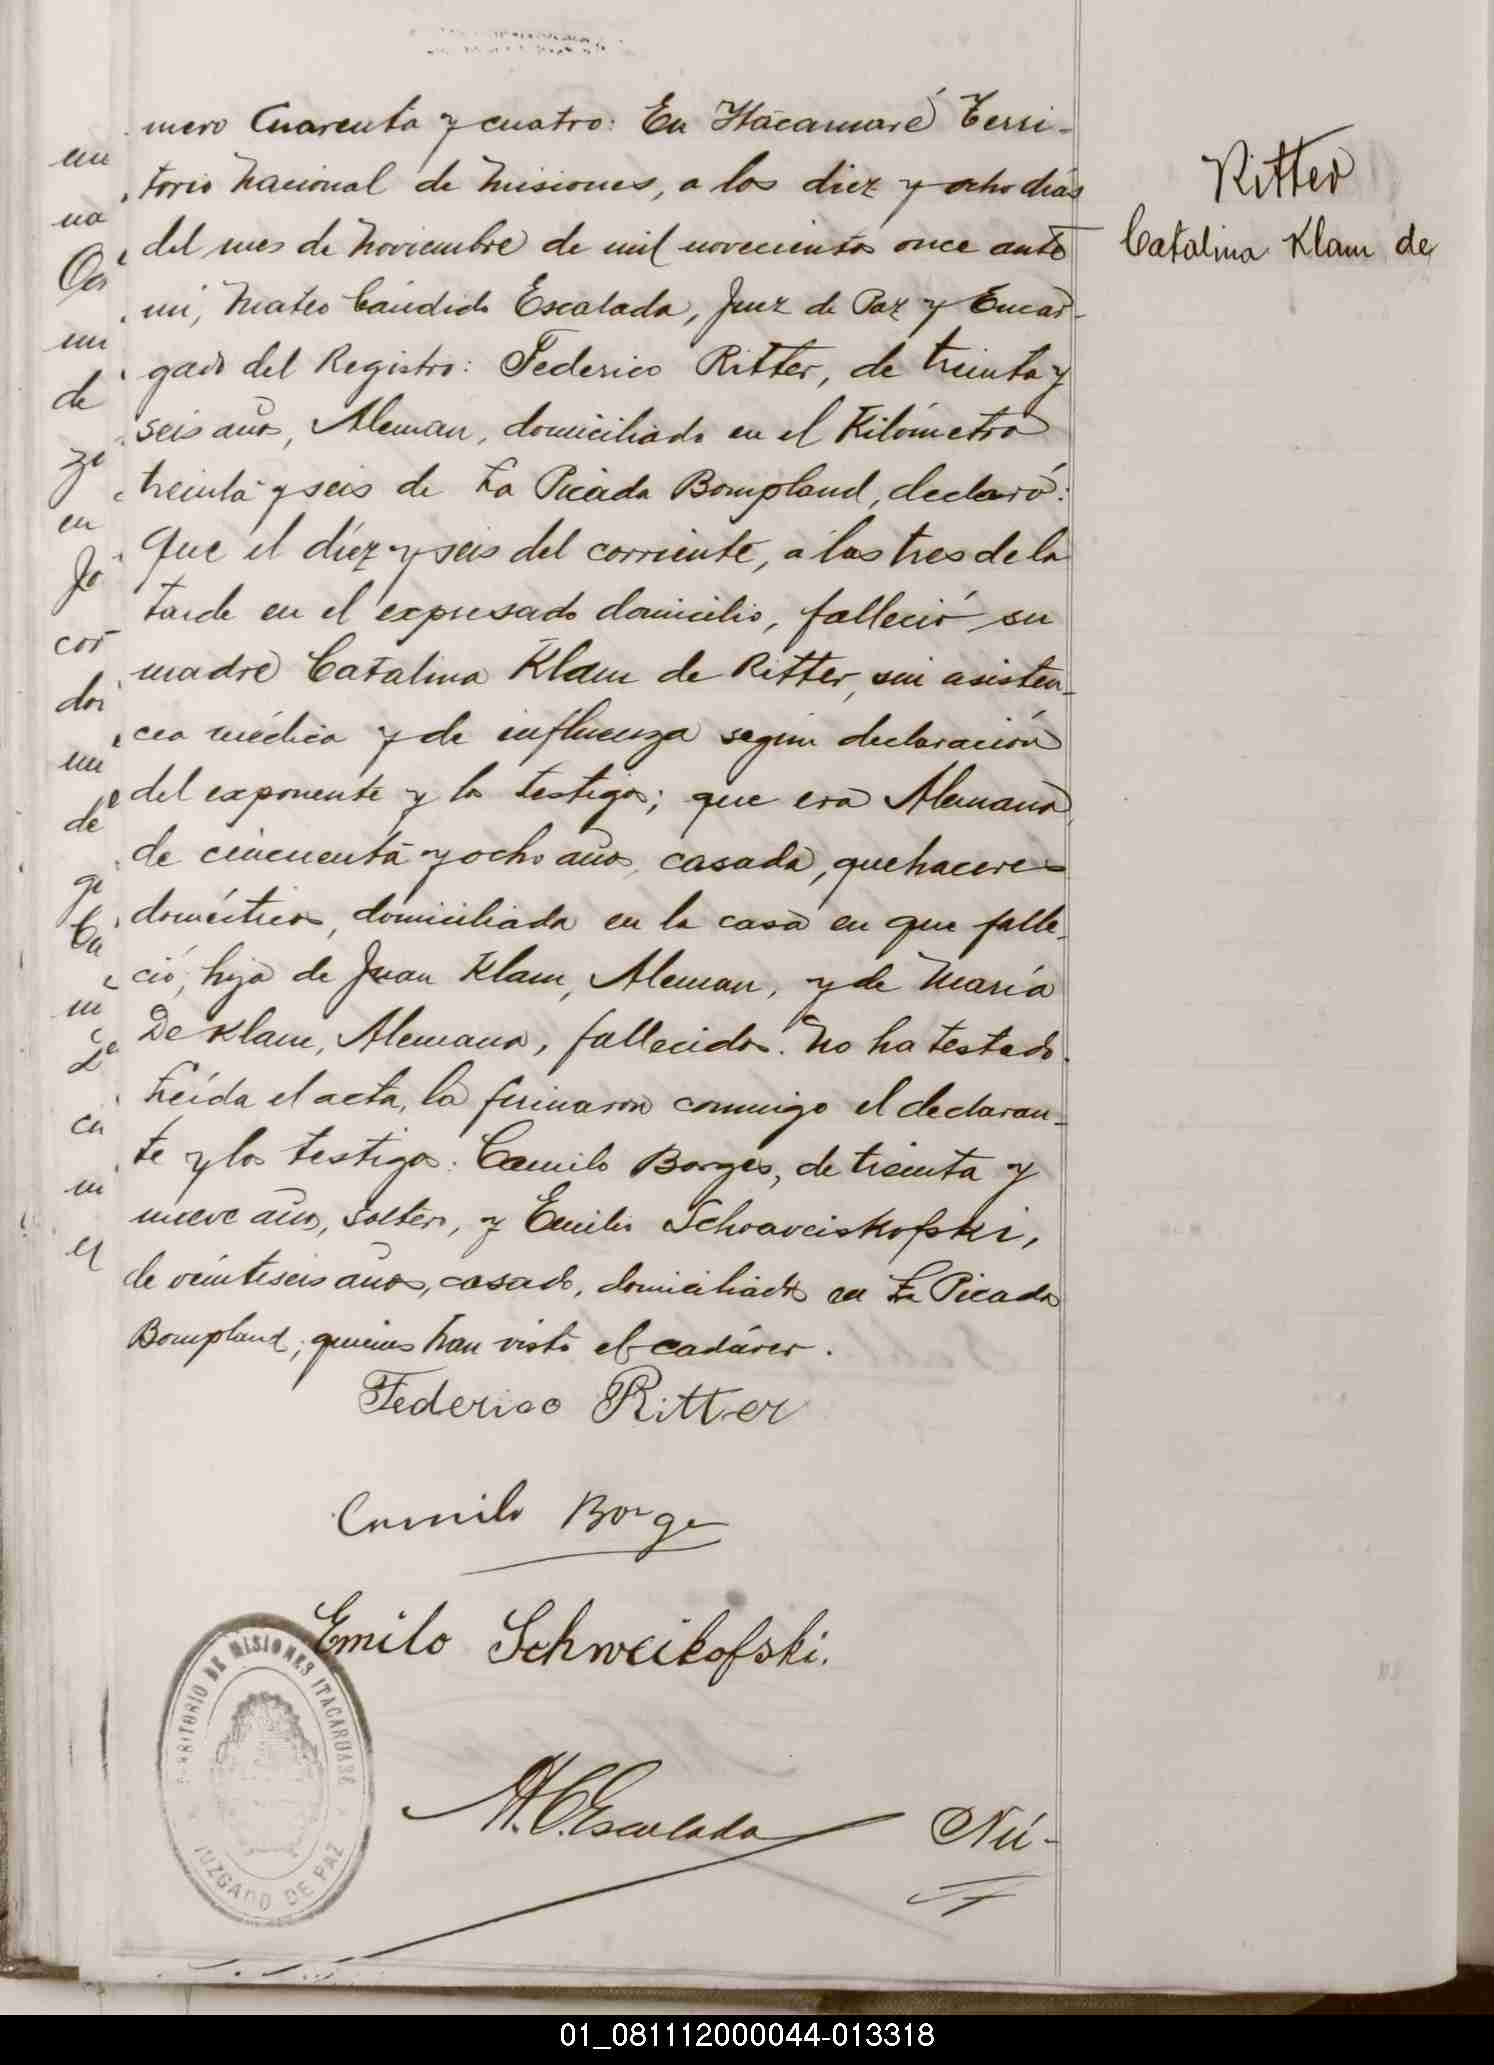 mero Cuarenta y cuatro: En Itacaruaré Terri-
torio Nacional de Misiones, a los diez y ocho dias
del mes de Noviembre de mil novecientos once ante
mi, Mateo Cándido Escalada, Juez de Paz y Encar-
gado del Registro: Federico Ritter, de treinta y
seis años, Aleman, domiciliado en el Kilómetro
treinta y seis de La Picada Bompland, declaró:
Que el diez y seis del corriente, a las tres de la
tarde en el expresado domicilio, falleció su
madre Catalina Klam de Ritter, sin asisten-
cia médica y de influenza segun declaración
del exponente y los testigos; que era Alemana
de cincuenta y ocho años, casada, quehaceres
domésticos, domiciliada en la casa en que falle-
ció, hija de Juan Klam, Aleman, y de María
De Klam, Alemana, fallecidos. No ha testado.
Leída el acta, la firmaron conmigo el declaran-
te y los testigos: Camilo Borges, de treinta y
nueve años, soltero, y Emilio Schraveiskofski,
de veintiseis años, casado, domiciliados en La Picada
Bompland, quienes han visto el cadáver.
Federico Ritter
Camilo Borge
Emilo Schweikofski.
M.C. Escalada
Nú-
Ritter
Catalina Klam de
TERRITORIO DE MISIONES ITACARUARE
JUZGADO DE PAZ
un
na
mi
de
en
Jo
cor
de
en
01_081112000044-013318